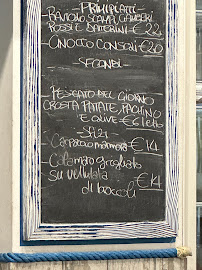 PRIMI PIATTI
RAVIOLO SCAMPI, GAMBERI
ROSSI E DATTERINI €22
GNOCCO CONSOLI €20
SECONDI
PESCATO DEL GIORNO
CROSTA PATATE, PACHINO
E OLIVE €6 l'etto
SFIZI
Carpaccio marmora €14
Calamaro grigliato
su vellutata
di broccoli €14